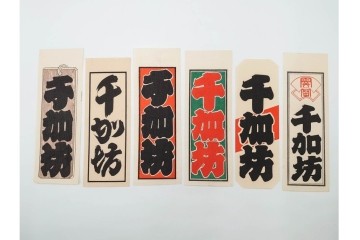 千加坊
千加坊
千加坊
千加坊
千加坊
千加坊